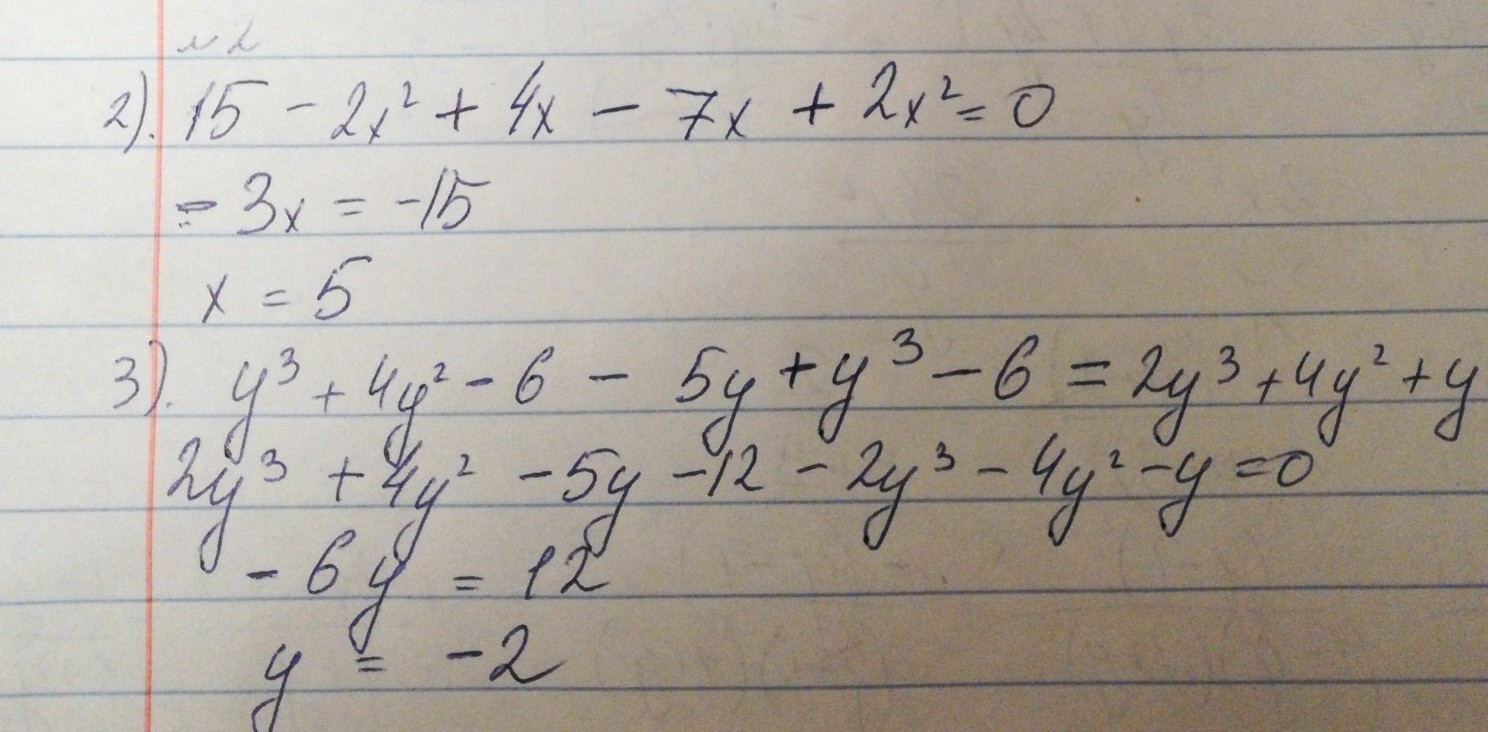 №2
2). 15 - 2x² + 4x - 7x + 2x² = 0
- 3x = -15
x = 5
3). y³ + 4y² - 6 - 5y + y³ - 6 = 2y³ + 4y² + y
2y³ + 4y² - 5y - 12 - 2y³ - 4y² - y = 0
- 6y = 12
y = -2